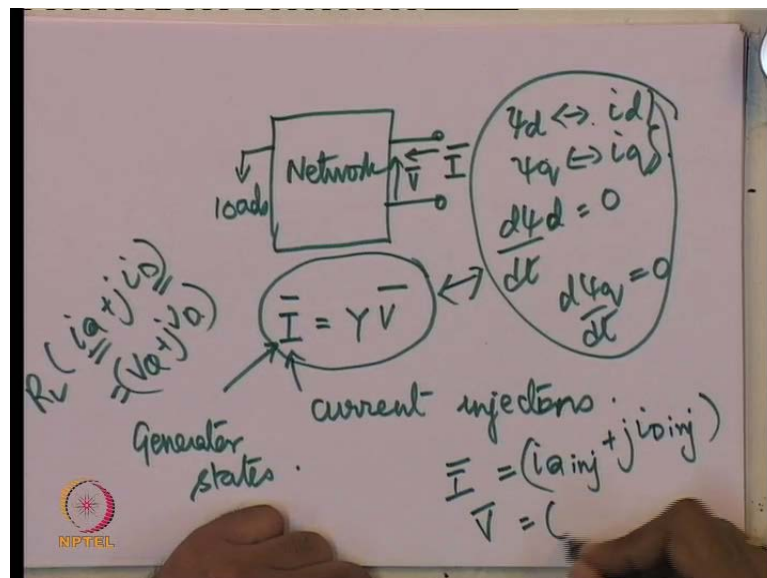 Network
V̄
Ī
loads
ψd ↔ id
ψq ↔ iq
dψd/dt = 0
dψq/dt = 0
Ī = Y V̄
RL (iQ + j iD)
= (vQ + j vD)
Generator
states.
current injections.
Ī = (iQ inj + j iD inj)
V̄ = (
NPTEL